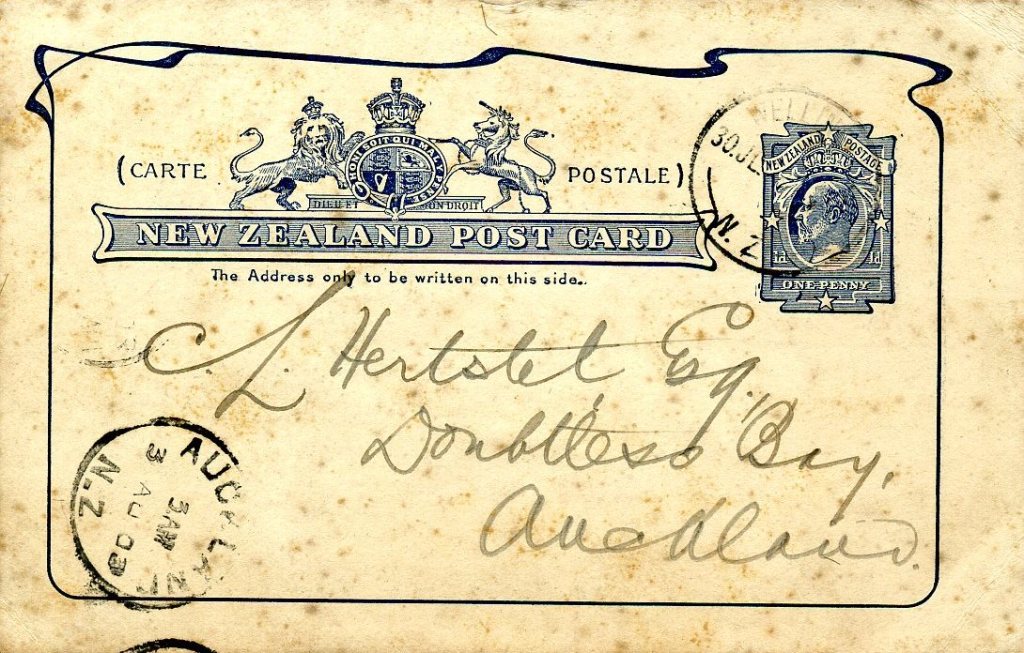 HONI SOIT QUI MAL Y PENSE
(CARTE POSTALE)
DIEU ET MON DROIT
NEW ZEALAND POST CARD
The Address only to be written on this side.
WELLI
30.JL
N.Z
NEW ZEALAND POSTAGE
1d 1d
ONE PENNY
C. L. Hertslet, Esq.,
Doubtless Bay,
Auckland.
AUCKLAND
3
3AM
AU 03
N.Z